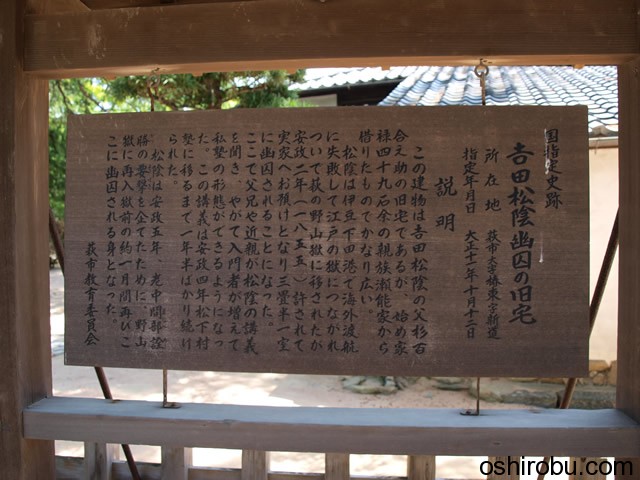 国指定史跡
吉田松陰幽囚の旧宅
所在地 萩市大字椿東字新道
指定年月日 大正十一年十月十二日
説明
この建物は吉田松陰の父杉百
合之助の旧宅であるが、始め家
禄四十九石余の親族瀬能家から
借りたものでかなり広い。
松陰は伊豆下田港で海外渡航
に失敗して江戸の獄につながれ
ついて萩の野山獄に移されたが
安政二年(一八五五)許されて
実家へお預けとなり三畳半一室
に幽囚されることになった。
ここで父兄や近親が松陰の講義
を聞き、やがて入門者が増えて
私塾の形態ができるようになっ
た。この講義は安政四年松下村
塾に移るまで一年半ばかり続け
られた。
松陰は安政五年、老中間部詮
勝の要撃を企てたために、野山
獄に再入獄前の約一月間再びこ
こに幽囚される身となった。
萩市教育委員会
oshirobu.com